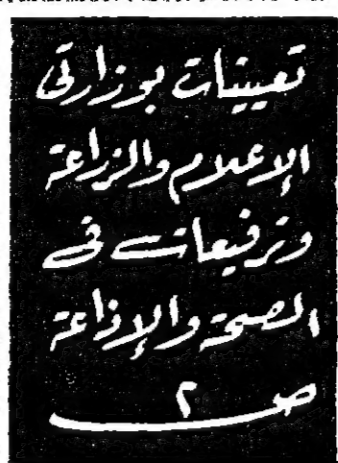 تعيينات بوزارتى
الإعلام والزراعة
وترفيعات فى
الصحة والإذاعة
صـ ٢